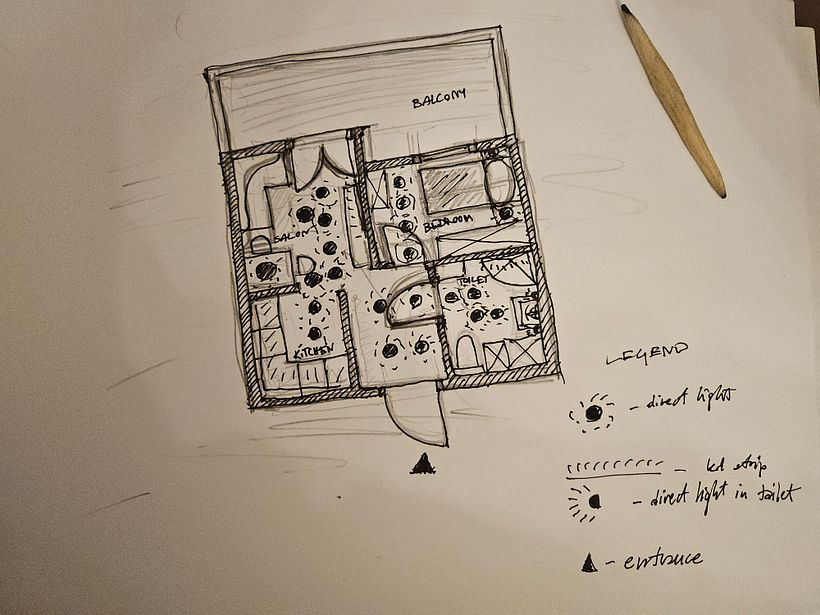 BALCONY
BEDROOM
SALON
TOILET
KITCHEN
LEGEND
- direct lights
- led strip
- direct light in toilet
- entrance